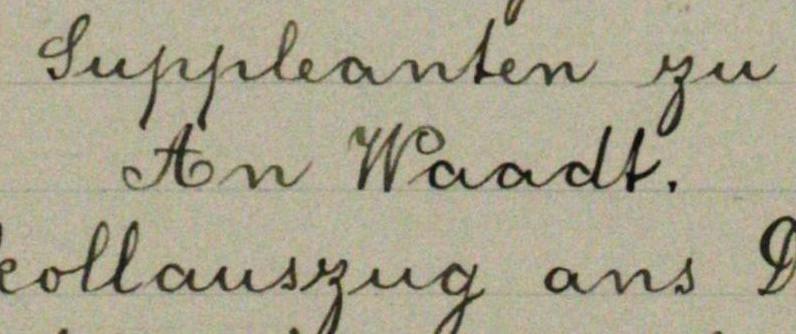 Suppleanten zu
An Waadt.
kollauszug ans D